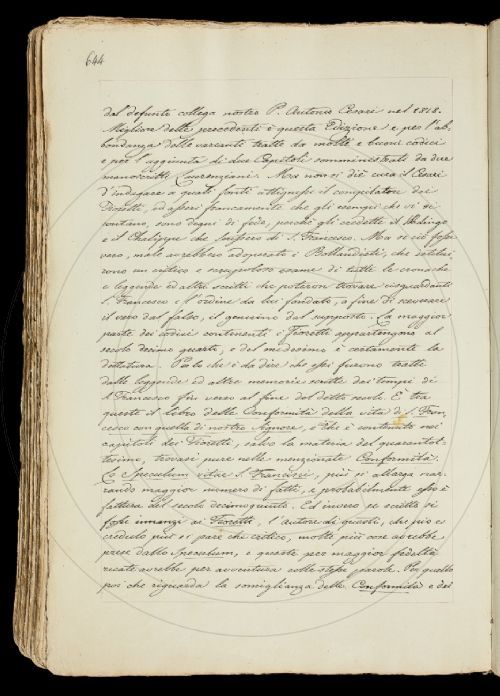 644
dal defunto collega nostro P. Antonio Cesari nel 1818.
Migliore delle precedenti è questa Edizione e per l'ab-
bondanza delle varianti tratte da molti e buoni codici
e per l'aggiunta di due Capitoli somministrati da due
manoscritti Laurenziani. Ma non si diè cura il Cesari
d'indagare a quali fonti attignesse il compilatore dei
Fioretti, ed asserì francamente che gli esempi che vi si
contano, sono degni di fede, perchè gli credette il Wadingo
e il Chalippe che scrissero di S. Francesco. Ma se ciò fosse
vero, male avrebbero adoperato i Bollandisti, che istitui-
rono un critico e scrupoloso esame di tutte le cronache
e leggende ed altri scritti che poterono trovare risguardanti
S. Francesco e l'ordine da lui fondato, a fine di sceverare
il vero dal falso, il genuino dal supposto. La maggior
parte dei codici contenenti i Fioretti appartengono al
secolo decimo quarto, e del medesimo è certamente la
dettatura. Parlo che è da dire che essi furono tratti
dalle leggende ed altre memorie scritte dai tempi di
S. Francesco fin verso al fine del detto secolo. E tra
queste il libro delle Conformità della vita di S. Fran-
cesco con quella di nostro Signore, e ciò è contenuto nei
capitoli dei Fioretti, salvo la materia del quarantot-
tesimo, trovasi pure nelle menzionate Conformità.
Lo Speculum vitae S. Francisci, più si allarga nar-
rando maggior numero di fatti, e probabilmente esso è
fattura del secolo decimoquinto. Ed invero se scritto si
fosse innanzi ai Fioretti, l'autore di questi, che pio e
credulo più si pare che critico, molte più cose avrebbe
prese dallo Speculum, e queste per maggior fedeltà
recate avrebbe per avventura colle stesse parole. Per quello
poi che riguarda la somiglianza delle Conformità e dei